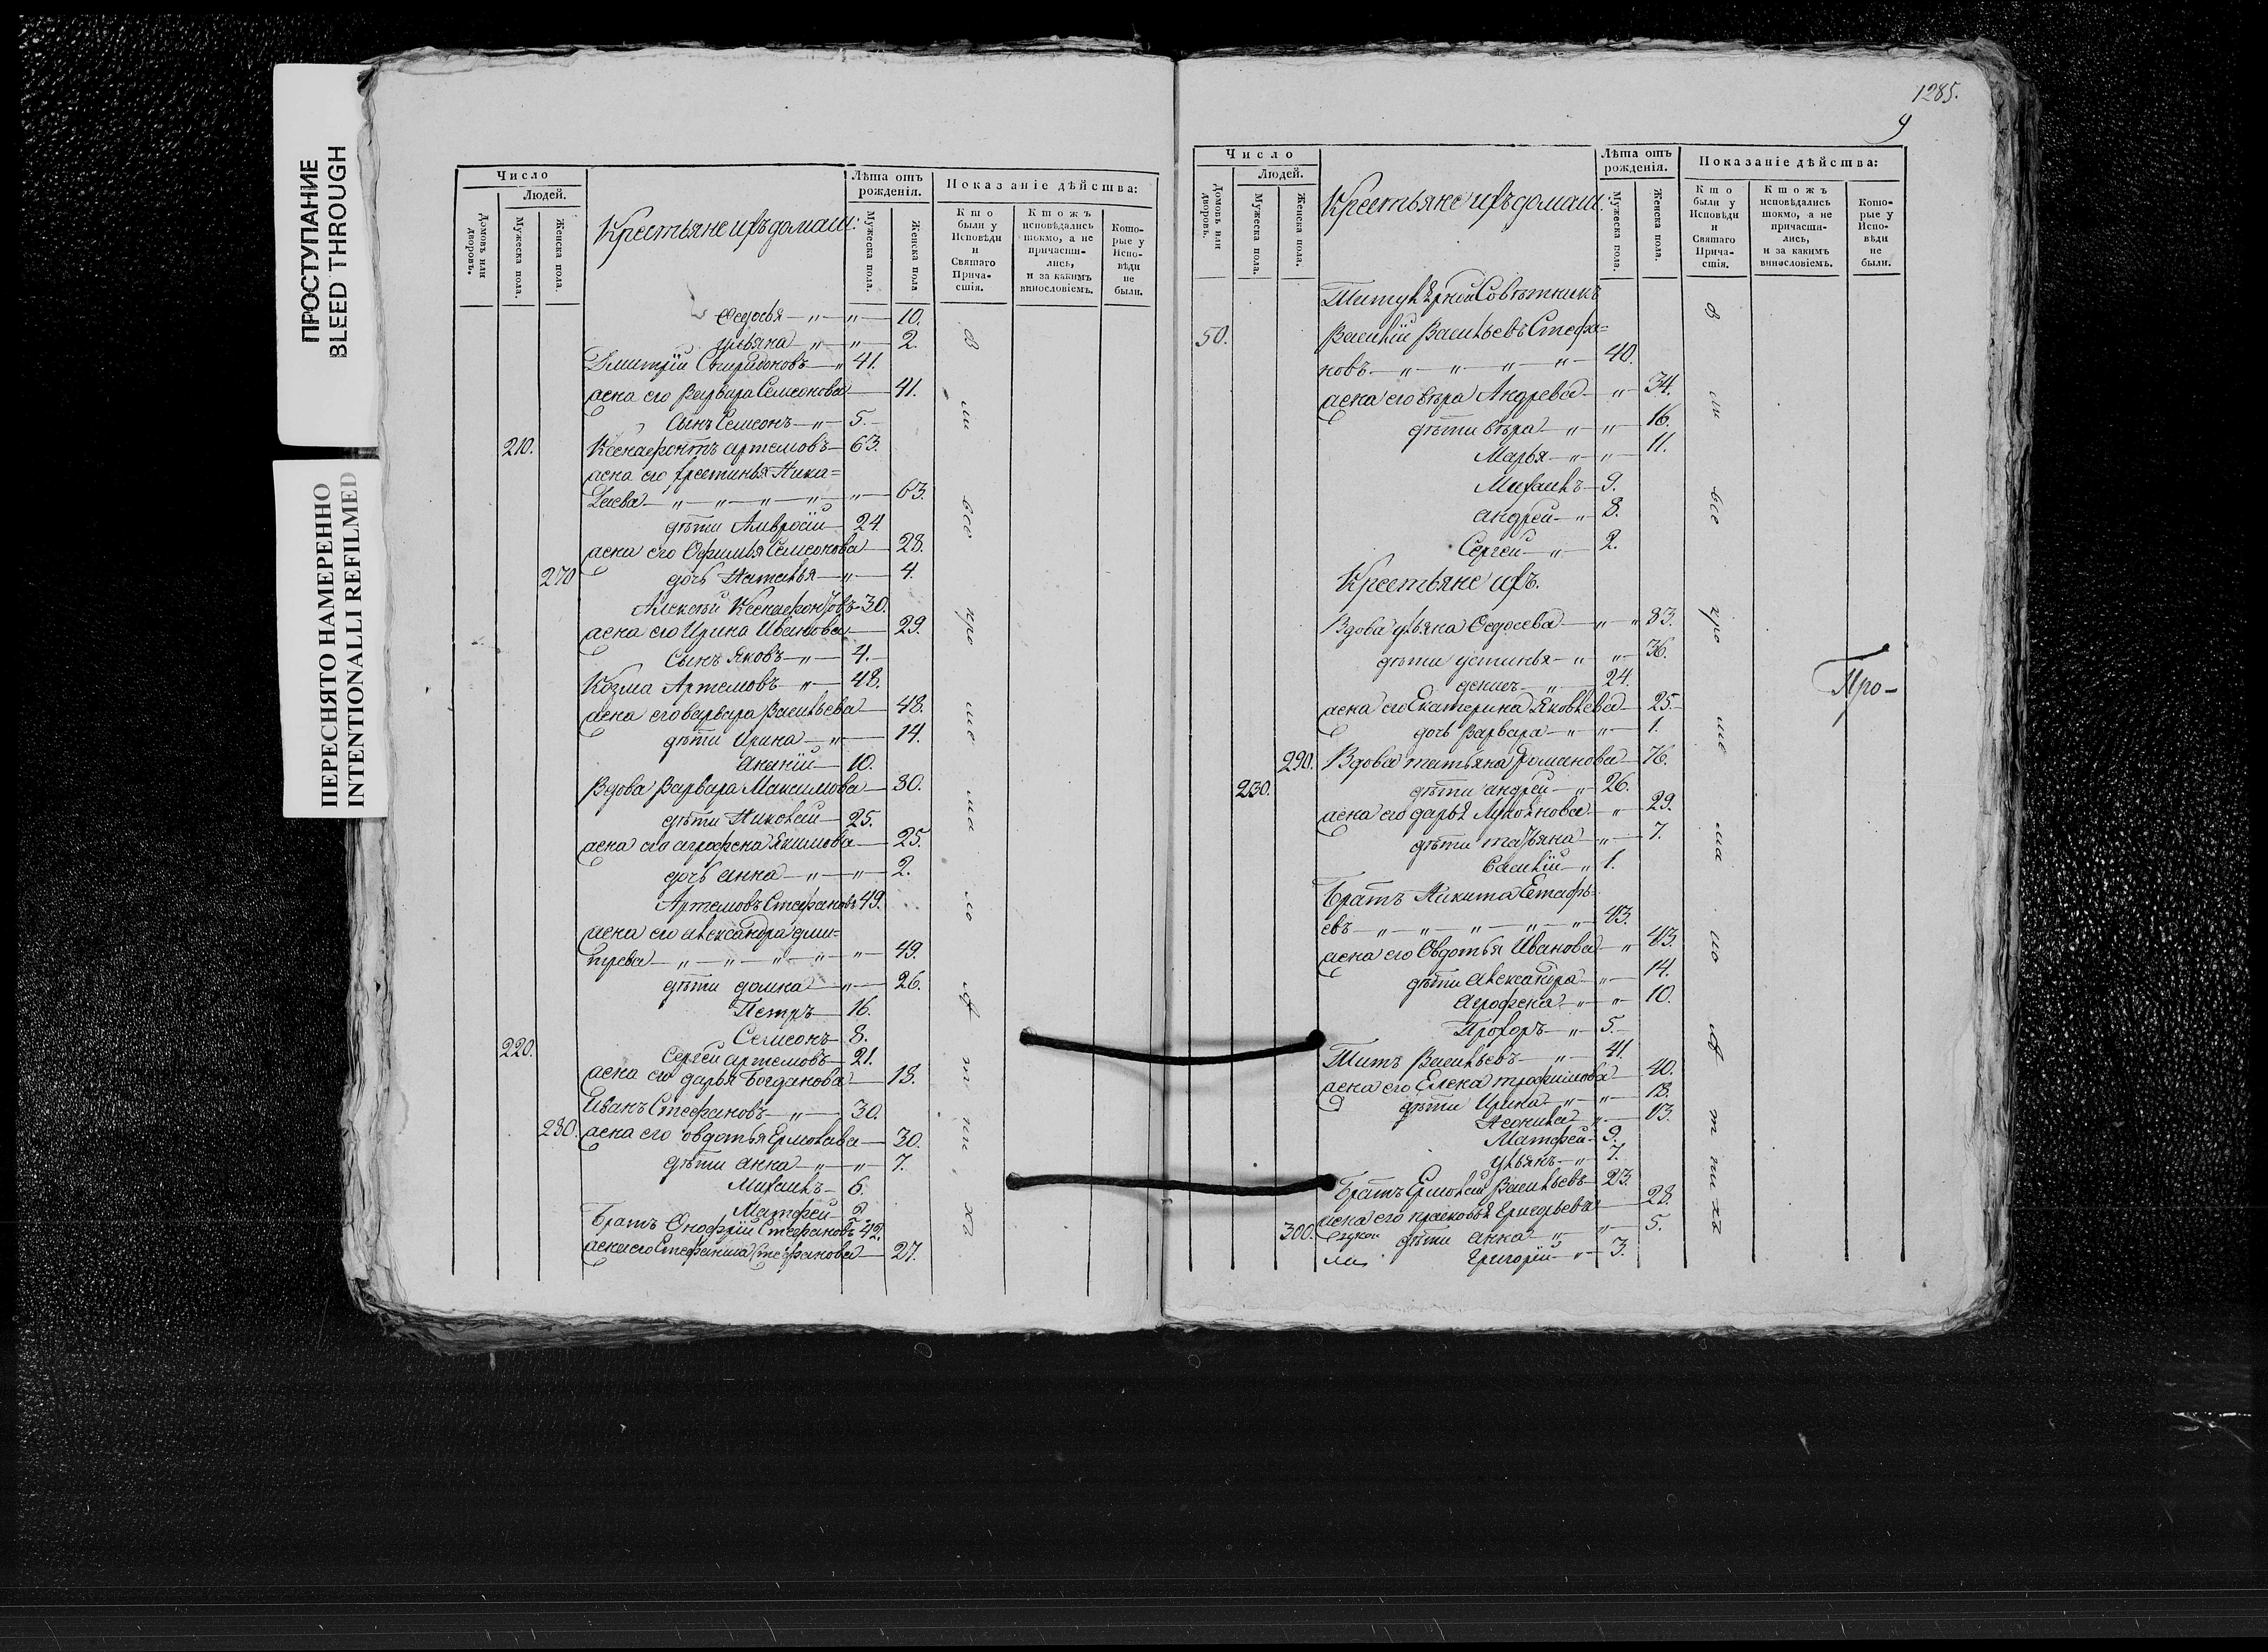 ПРОСТУПАНИЕ
BLEED THROUGH
ПЕРЕСНЯТО НАМЕРЕННО
INTENTIONALLI REFILMED
Число
Людей.
Домовъ или дворовъ.
Мужеска пола.
Женска пола.
Крестьяне ихъ домаш:
Лѣта отъ рожденія.
Мужеска пола.
Женска пола
Показаніе дѣйства:
Кто были у Исповѣди и Святаго Прича-стія.
Ктожъ исповѣдались токмо, а не причасти-лись, и за какимъ винословіемъ.
Кото-рые у Испо-вѣди не были.
Федосья — „ — „ — 10.
ульяна — „ — „ — 2.
Дмитрій Спиридоновъ — „ 41.
жена его Варвара Семеонова — 41.
Сынъ Семеонъ — „ — 5.
210. Ксенафонтъ артемовъ — 63.
жена его Крестинья Ника=
лаева — „ — „ — „ — „ — „ — 63.
дѣти Амвросій — 24.
жена его Офимья Семеонова — 28.
270 дочь Наталья — „ — 4.
Алексѣй Ксенафонтовъ — 30.
жена его Ирина Иванова — 29.
Сынъ Яковъ — „ — 4.
Козма Артемовъ — „ — 48.
жена его варвара Васильева — 48.
дѣти Ирина — „ — 14.
Ананій — 10.
Вдова Варвара Максимова — 30.
дѣти Николай — 25.
жена его аграфена Якимова — 25.
дочь анна — „ — „ — 2.
Артемовъ Стефановъ 49.
жена его александра дми=
трева — „ — „ — „ — „ — „ — 49.
дѣти домна — „ — 26.
Петръ — 16.
Семеонъ — 8.
220. Сергей артемовъ — 21.
жена его дарья Богданова — 18.
Иванъ Стефановъ — „ — 30.
280. жена его овдотья Ермолава — 30.
дѣти анна — „ — „ — 7.
Михаилъ — 6.
Матфей — 2
Братъ Онофрій Стефановъ 42.
жена его Стефанида Стефанова — 27.
в
си
все
про
ше
ма
ло
ѣ
т
ни
хъ
1285.
9
Число
Людей.
Домовъ или дворовъ.
Мужеска пола.
Женска пола.
Крестьяне ихъ домаш:
Лѣта отъ рожденія.
Мужеска пола.
Женска пола.
Показаніе дѣйства:
Кто были у Исповѣди и Святаго Прича-стія.
Ктожъ исповѣдались токмо, а не причасти-лись, и за какимъ винословіемъ.
Кото-рые у Испо-вѣди не были.
Титулярной Совѣтникъ
50. Василій Васильевъ Стефа=
новъ — „ — „ — „ — „ — 40.
жена его вѣра Андрева — „ — 34.
дѣти вѣра — „ — „ — 16.
Марья — „ — „ — 11.
Михаилъ — 9.
андрей — „ 8.
Сергей — „ — 2.
Крестьяне ихъ.
Вдова ульяна Федосева — „ — „ 83.
дѣти устинья — „ „ — 36.
денисъ — „ — 24.
жена его Екатерина Яковлева — 25.
дочь Варвара — „ „ — 1.
290. Вдова татьяна Романова — 76.
230. дѣти андрей — „ 26.
жена его дарья Лукоянова — „ 29.
дѣти татьяна — „ — 7.
Василій — „ 1.
Братъ Никита Естафь=
евъ — „ — „ — „ — „ — „ — 43.
жена его Овдотья Иванова — „ 43.
дѣти александра — „ — 14.
Аграфена — „ — „ — 10.
Прохоръ — „ 5.
Титъ Васильевъ — „ — 41.
жена его Елена трофимова — 40.
дѣти Ирина — „ — „ — 18.
Леонила — „ — 13.
Матфей — 9.
ульянъ — „ — 7.
Братъ Ермолай Васильевъ — 23.
жена его прасковья Григорьева — 28.
300. дѣти анна — „ — „ — 5.
Григорій — „ — 3.
Про-
в
си
все
про
ше
ма
ло
ѣ
т
ни
хъ